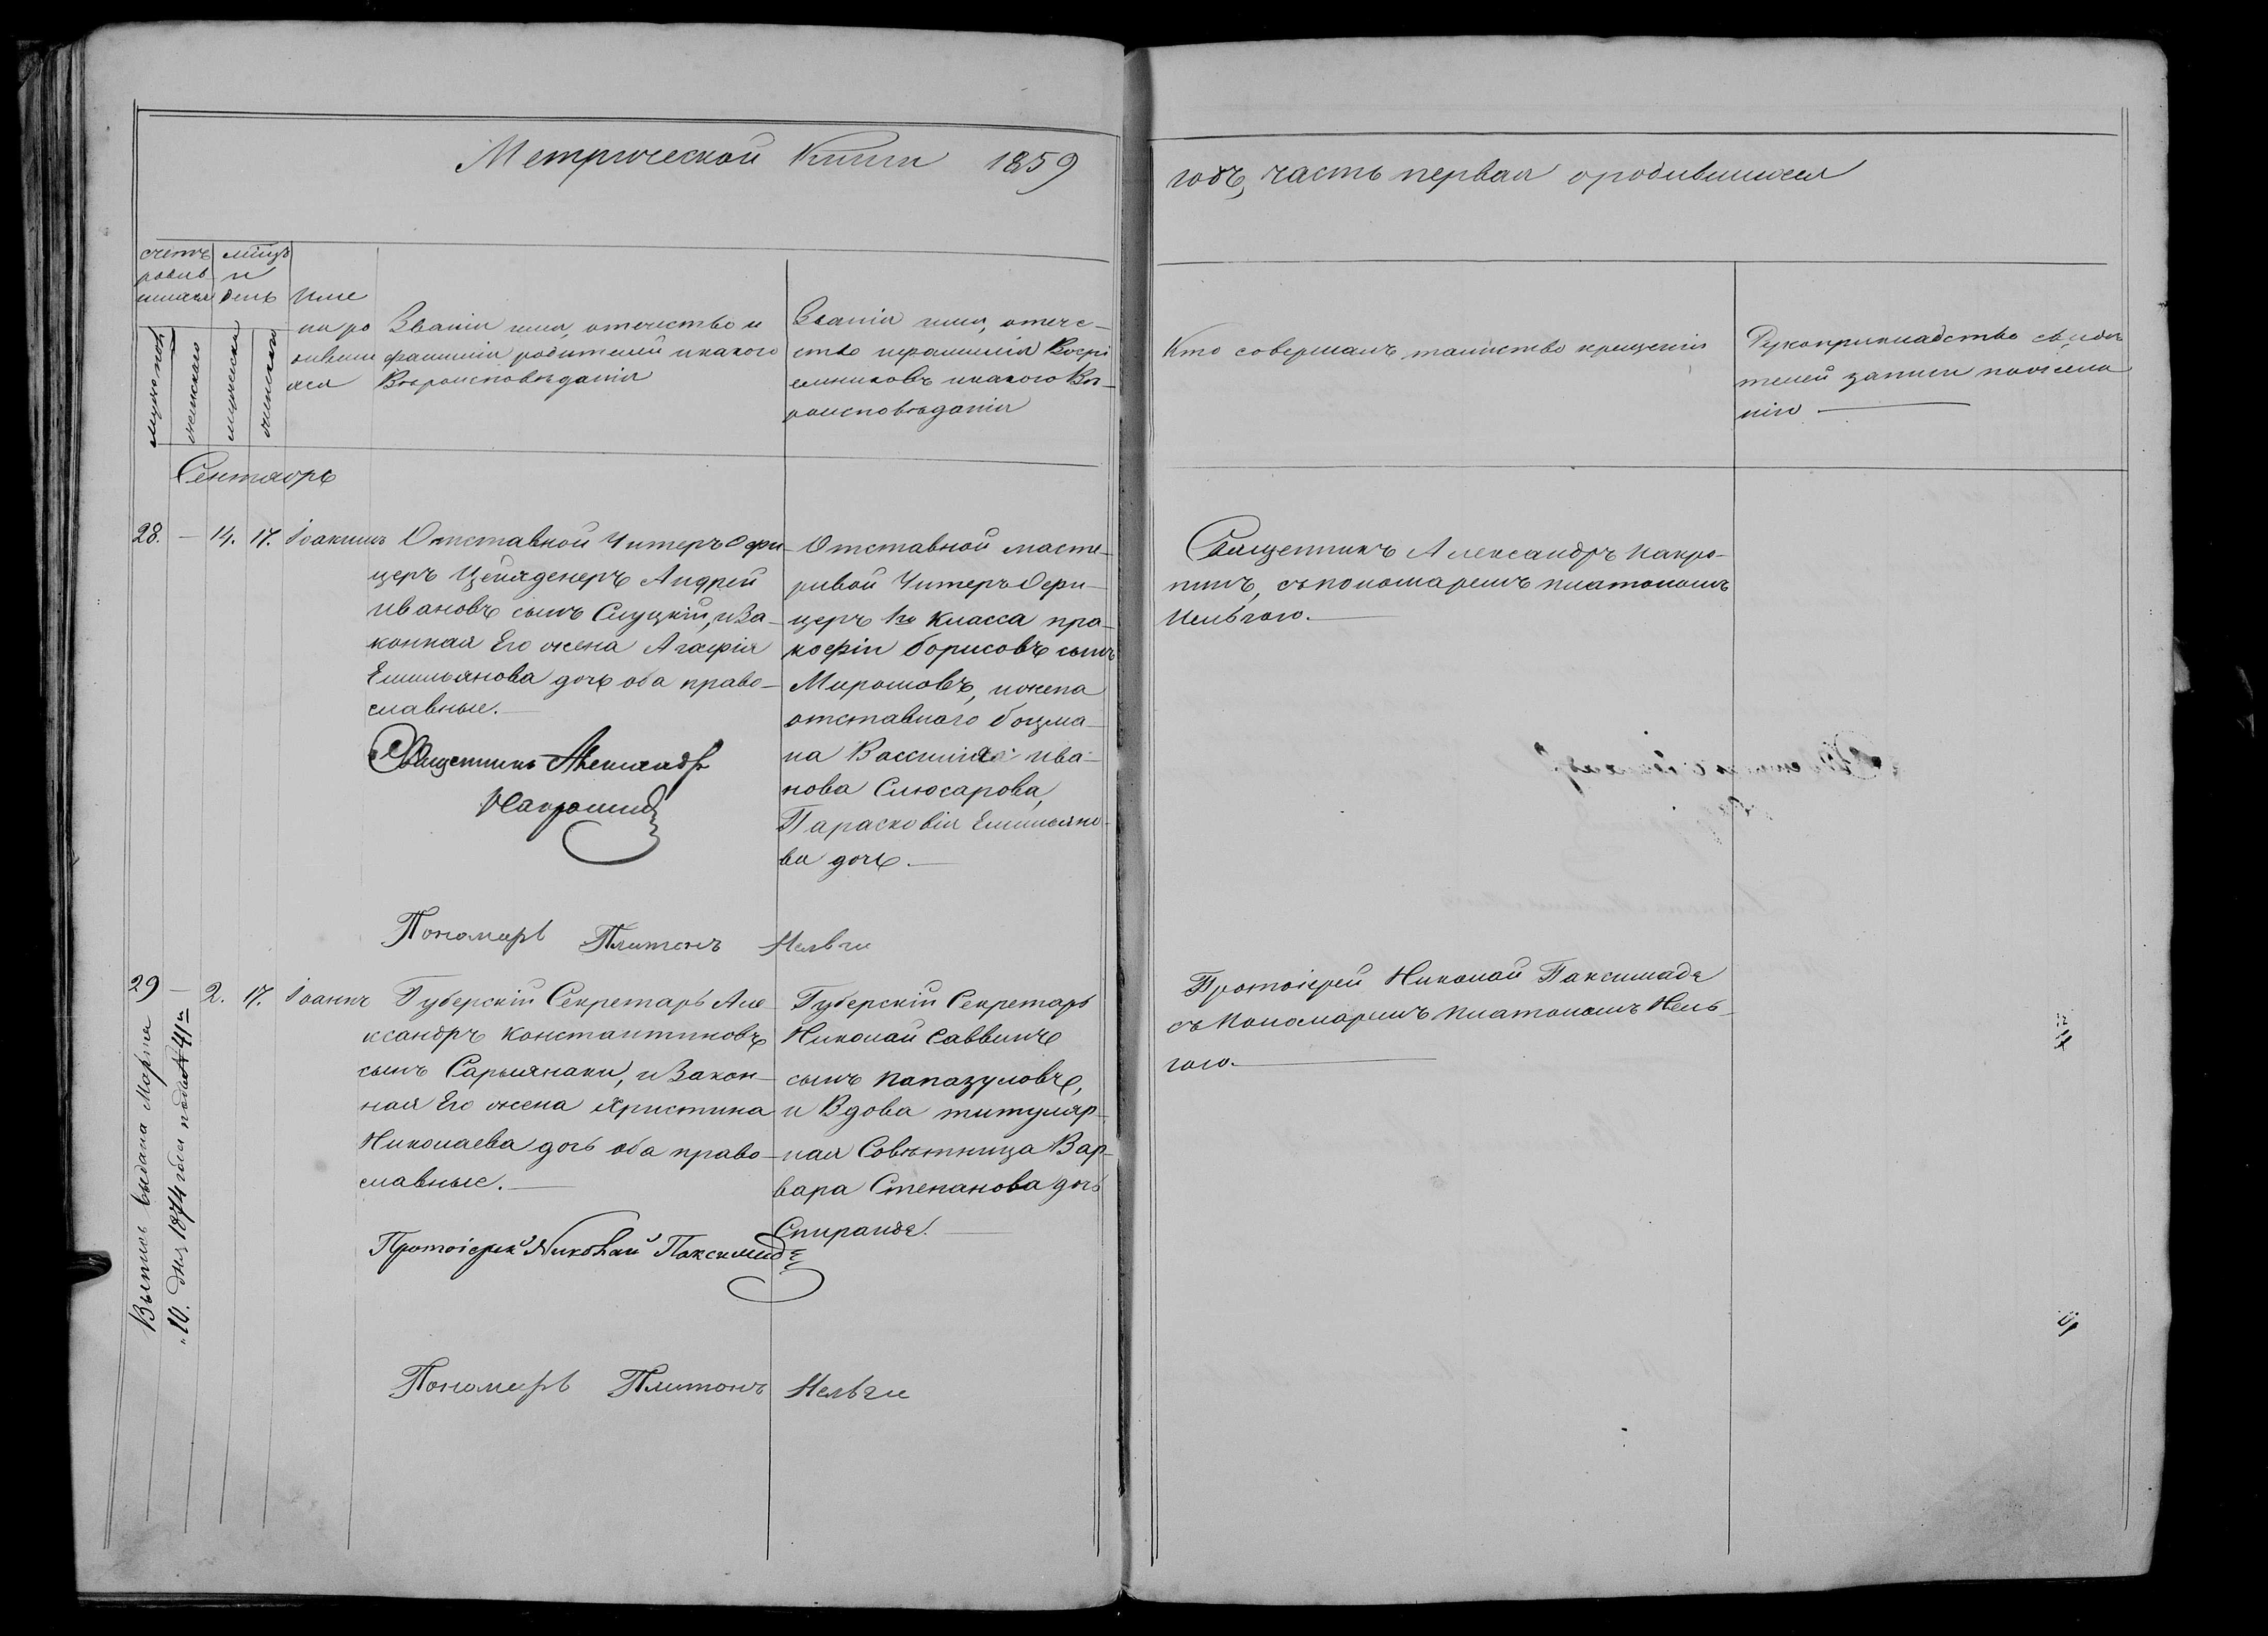 Метрической Книги 1859
годъ, часть первая о родившихся
счетъ родив шихся
мѣсцъ и день
мужеска
женскаго
рожденія
крещенія
Име на ро дивши хся
Званіе имя, отечество и
фамилія родителей и какого
Вѣроисповѣданія
Званіе имя, отече-
ство и фамилія Воспрі
емниковъ и какого Вѣ-
роисповѣданія
Кто совершалъ таинство крещенія
Рукоприкладство свидѣ
телей записи по жела
нію
Сентябрь
28. — 14. 17. Іоакимъ
Отставной Унтеръ Офи-
церъ Цейхдинеръ Андрей
Ивановъ сынъ Слуцкій, и За-
конная Его жена Агафія
Емильянова дочь оба право-
славные.
Священникъ Александръ
Накропинъ
Отставной масте-
ровой Унтеръ Офи-
церъ 1го Класса про-
кофій Борисовъ сынъ
Мироновъ, и жена
отставного боцма-
на Василия Ива-
нова Слюсарова,
Парасковія Емильяно-
ва дочь.
Священникъ Александръ Накро-
пинъ, съ пономаремъ Платономъ
Нельгою.
Пономарь Платонъ Нельги
29 — 2. 17. Іоаннъ
Губерскій Секретарь Але
ксандръ Константиновъ
сынъ Сарыянаки, и Закон-
ная Его жена Христина
Николаева дочь оба право-
славные.
Протоіерей Николай Паксимадѣ
Губерскій Секретарь
Николай Саввинъ
сынъ Папазуловъ,
и Вдова титуляр-
ная Совѣтница Вар-
вара Степанова дочь
Спиранде.
Протоіерей Николай Паксимаде
съ Пономаремъ Платономъ Нель-
гою.
Пономарь Платонъ Нельги
Выпись выдана Марта
"10. дня 1874 года подъ № 41м